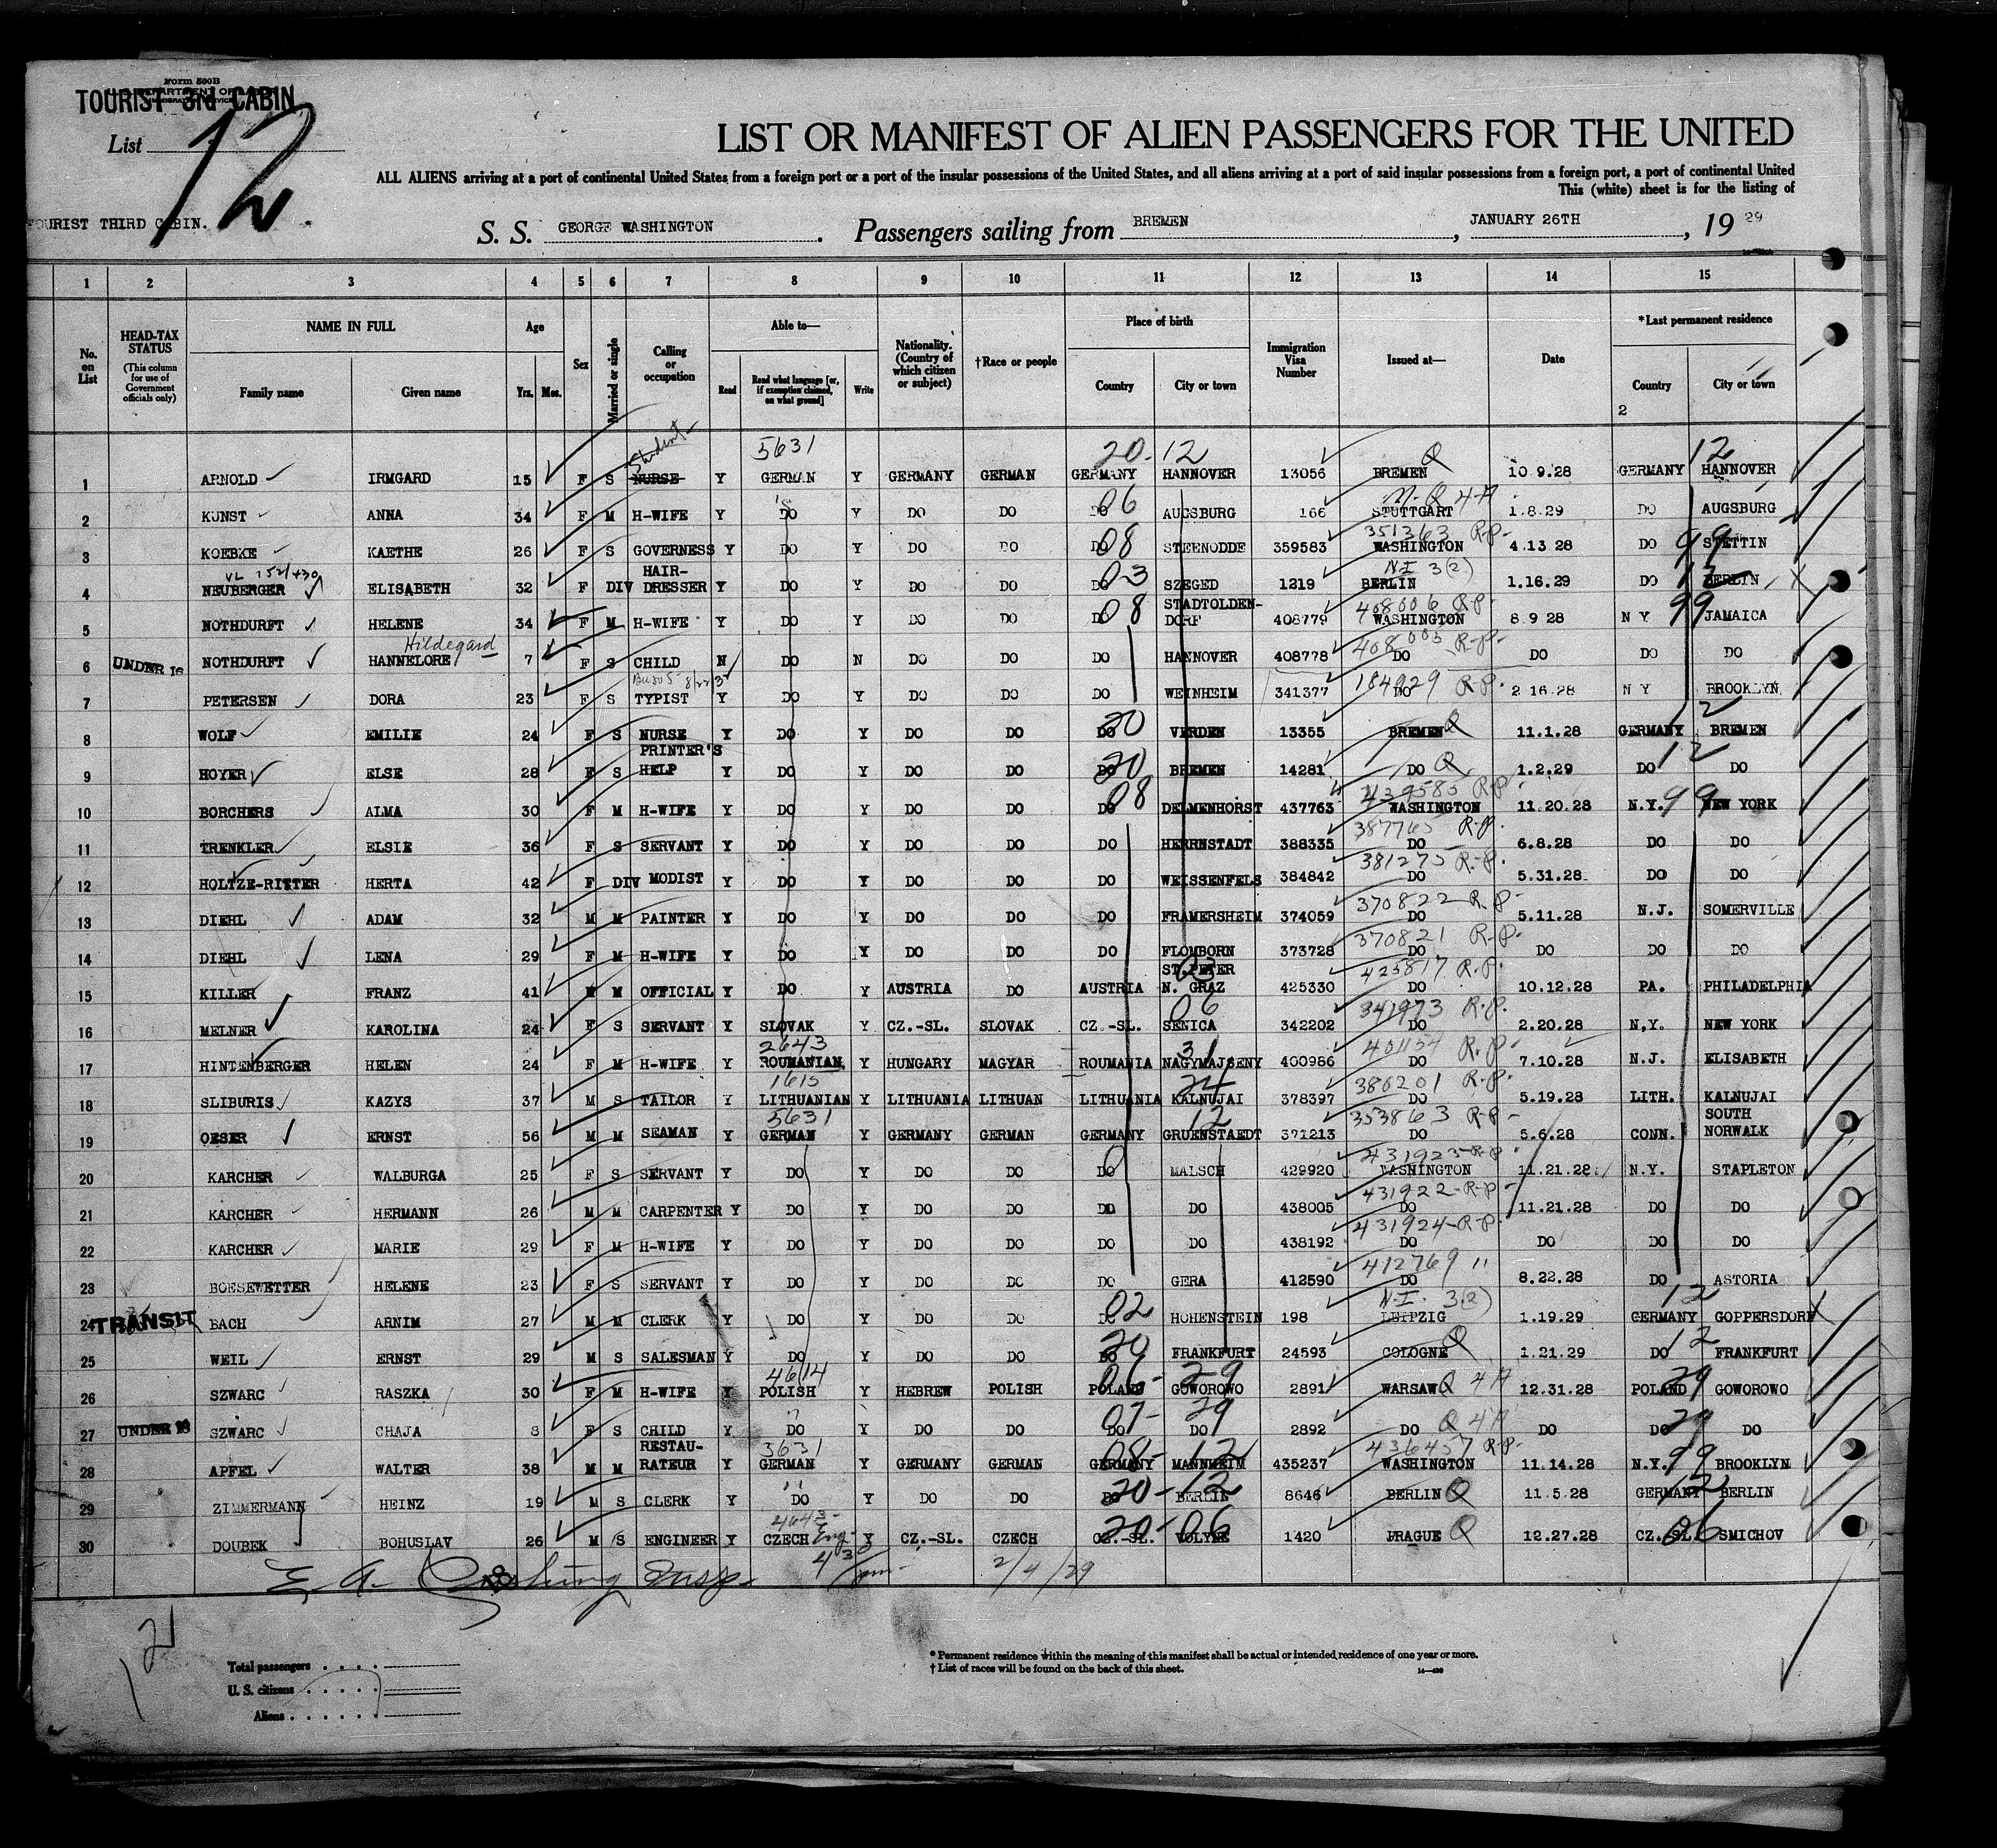 Form 500B
TOURIST 3rd CABIN
List 12
LIST OR MANIFEST OF ALIEN PASSENGERS FOR THE UNITED
ALL ALIENS arriving at a port of continental United States from a foreign port or a port of the insular possessions of the United States, and all aliens arriving at a port of said insular possessions from a foreign port, a port of continental United
This (white) sheet is for the listing of
TOURIST THIRD CABIN.
S. S. GEORGE WASHINGTON . Passengers sailing from BREMEN , JANUARY 26TH , 19 29
1 2 3 4 5 6 7 8 9 10 11 12 13 14 15
No. on List
HEAD-TAX STATUS (This column for use of Government officials only)
NAME IN FULL Family name Given name
Age Yrs. Mos.
Sex
Married or single
Calling or occupation
Able to— Read Read what language [or, if exemption claimed, on what ground] Write
Nationality. (Country of which citizen or subject)
†Race or people
Place of birth Country City or town
Immigration Visa Number
Issued at—
Date
*Last permanent residence Country City or town
2
Student 5631 20-12 Q 12
1 ARNOLD IRMGARD 15 F S NURSE Y GERMAN Y GERMANY GERMAN GERMANY HANNOVER 13056 BREMEN 10 9.28 GERMANY HANNOVER
06 Q 4A
2 KUNST ANNA 34 F M H-WIFE Y DO Y DO DO DO AUGSBURG 166 STUTTGART 1.8.29 DO AUGSBURG
08 351363 R.P. 99
3 KOEBKE KAETHE 26 F S GOVERNESS Y DO Y DO DO DO STEENODDE 359583 WASHINGTON 4.13 28 DO STETTIN
HAIR- 03 N.I 3(2) 12
4 NEUBERGER ELISABETH 32 F DIV DRESSER Y DO Y DO DO DO SZEGED 1219 BERLIN 1.16.29 DO BERLIN X
08 STADTOLDEN- 408006 R.P. 99
5 NOTHDURFT HELENE 34 F M H-WIFE Y DO Y DO DO DO DORF 408779 WASHINGTON 8 9 28 N Y JAMAICA
Hildegard 408005 R.P.
6 UNDER 16 NOTHDURFT HANNELORE 7 F S CHILD N DO N DO DO DO HANNOVER 408778 DO DO DO DO
184929 R.P.
7 PETERSEN DORA 23 F S TYPIST Y DO Y DO DO DO WEINHEIM 341377 DO 2 16.28 N Y BROOKLYN
20 Q 12
8 WOLF EMILIE 24 F S NURSE Y DO Y DO DO DO VERDEN 13355 BREMEN 11.1.28 GERMANY BREMEN
PRINTER'S 20 Q 12
9 HOYER ELSE 28 F S HELP Y DO Y DO DO DO BREMEN 14281 DO 1.2.29 DO DO
08 439585 R.P. 99
10 BORCHERS ALMA 30 F M H-WIFE Y DO Y DO DO DO DELMENHORST 437763 WASHINGTON 11.20.28 N.Y. NEW YORK
387765 R.P.
11 TRENKLER ELSIE 36 F S SERVANT Y DO Y DO DO DO HERRNSTADT 388335 DO 6.8.28 DO DO
381275 R.P.
12 HOLTZE-RITTER HERTA 42 F DIV MODIST Y DO Y DO DO DO WEISSENFELS 384842 DO 5.31.28 DO DO
370822 R.P.
13 DIEHL ADAM 32 M M PAINTER Y DO Y DO DO DO FRAMERSHEIM 374059 DO 5.11.28 N.J. SOMERVILLE
370821 R.P.
14 DIEHL LENA 29 F M H-WIFE Y DO Y DO DO DO FLOMBORN 373728 DO DO DO DO
ST.PETER 03 425817 R.P.
15 KILLER FRANZ 41 M M OFFICIAL Y DO Y AUSTRIA DO AUSTRIA N. GRAZ 425330 DO 10.12.28 PA. PHILADELPHIA
06 341973 R.P.
16 MELNER KAROLINA 24 F S SERVANT Y SLOVAK Y CZ.-SL. SLOVAK CZ.-SL. SENICA 342202 DO 2.20.28 N,Y. NEW YORK
2643 31 401154 R.P.
17 HINTENBERGER HELEN 24 F M H-WIFE Y ROUMANIAN, Y HUNGARY MAGYAR ROUMANIA NAGYMAJSENY 400986 DO 7.10.28 N.J. ELISABETH
1615 24 380201 R.P.
18 SLIBURIS KAZYS 37 M S TAILOR Y LITHUANIAN Y LITHUANIA LITHUAN LITHUANIA KALNUJAI 378397 DO 5.19.28 LITH. KALNUJAI
5631 12 353863 R.P. SOUTH
19 OESER ERNST 56 M M SEAMAN Y GERMAN Y GERMANY GERMAN GERMANY GRUENSTAEDT 371213 DO 5.6.28 CONN. NORWALK
431923-R.P.
20 KARCHER WALBURGA 25 F S SERVANT Y DO Y DO DO DO MALSCH 429920 WASHINGTON 11.21.28 N.Y. STAPLETON
431922-R.P.
21 KARCHER HERMANN 26 M M CARPENTER Y DO Y DO DO DO DO 438005 DO 11.21.28 DO DO
431924-R.P.
22 KARCHER MARIE 29 F M H-WIFE Y DO Y DO DO DO DO 438192 DO DO DO DO
412769 "
23 BOESEWETTER HELENE 23 F S SERVANT Y DO Y DO DO DO GERA 412590 DO 8.22.28 DO ASTORIA
02 N.I. 3(2) 12
24 TRANSIT BACH ARNIM 27 M M CLERK Y DO Y DO DO DO HOHENSTEIN 198 LEIPZIG 1.19.29 GERMANY GOPPERSDORF X
20 Q 12
25 WEIL ERNST 29 M S SALESMAN Y DO Y DO DO DO FRANKFURT 24593 COLOGNE 1.21.29 DO FRANKFURT
4614 06-29 Q 4A 29
26 SZWARC RASZKA 30 F M H-WIFE Y POLISH Y HEBREW POLISH POLAND GOWOROWO 2891 WARSAW 12.31.28 POLAND GOWOROWO
" 07-29 Q 4A 29
27 UNDER 16 SZWARC CHAJA 8 F S CHILD Y DO Y DO DO DO DO 2892 DO DO DO DO
RESTAU- 3631 08-12 436457 R.P. 99
28 APFEL WALTER 38 M M RATEUR Y GERMAN Y GERMANY GERMAN GERMANY MANNHEIM 435237 WASHINGTON 11.14.28 N.Y. BROOKLYN
" 20-12 Q 12
29 ZIMMERMANN HEINZ 19 M S CLERK Y DO Y DO DO DO BERLIN 8646 BERLIN 11.5.28 GERMANY BERLIN
4643 Eng- 20-06 Q 06
30 DOUBEK BOHUSLAV 26 M S ENGINEER Y CZECH Y CZ.-SL. CZECH CZ.-SL. VOLYNE 1420 PRAGUE 12.27.28 CZ.SL. SMICHOV
E A Cushing Insp. 2/4/29
Total passengers . . . .
U. S. citizens . . . . .
Aliens . . . . . .
* Permanent residence within the meaning of this manifest shall be actual or intended residence of one year or more.
† List of races will be found on the back of this sheet.
14—430